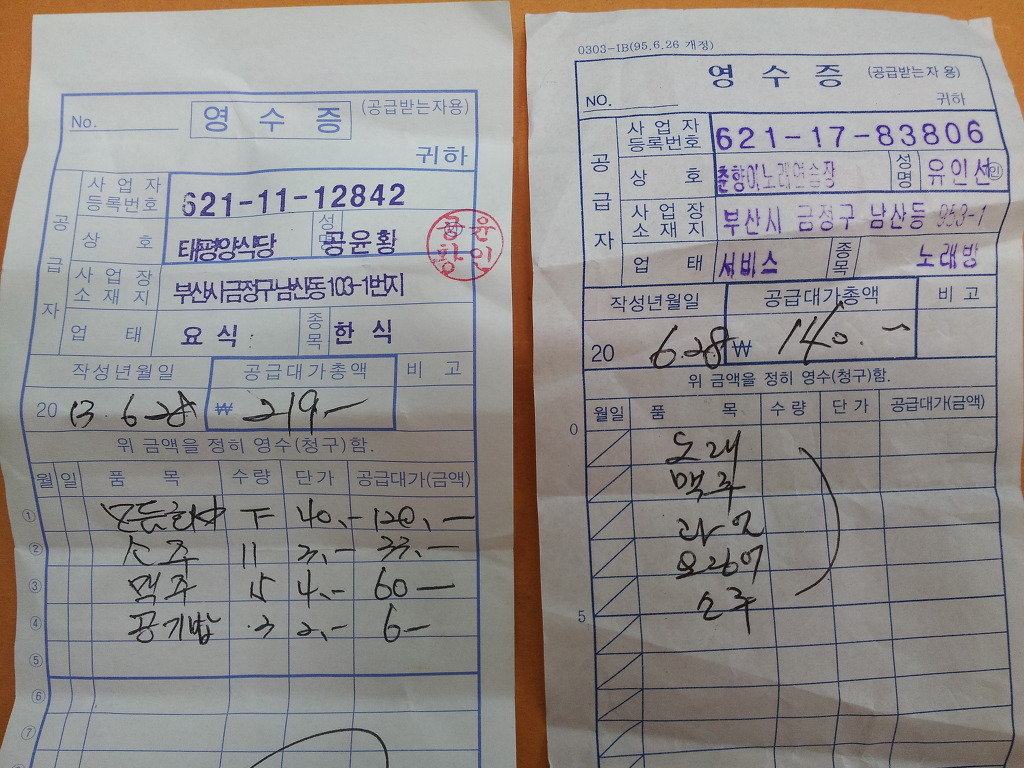 No. 영 수 증 (공급받는자용)
귀하
공급자
사업자등록번호 621-11-12842
상호 태평양식당 성명 공윤황
공윤황인
사업장소재지 부산시금정구남산동103-1번지
업태 요식 종목 한식
작성년월일 공급대가총액 비고
20 13. 6. 28 ₩ 219,-
위 금액을 정히 영수(청구)함.
월 일 품 목 수량 단가 공급대가(금액)
① 모듬회 下 40,- 120,-
② 소주 11 3,- 33,-
③ 맥주 15 4,- 60-
④ 공기밥 3 2,- 6-
⑤
⑥
⑦
0303-1B(95.6.26 개정)
영 수 증 (공급받는자용)
NO. 귀하
공급자
사업자등록번호 621-17-83806
상호 춘향이노래연습장 성명 유인선 인
사업장소재지 부산시 금정구 남산동 953-1
업태 서비스 종목 노래방
작성년월일 공급대가총액 비고
20 6 28 ₩ 140.-
위 금액을 정히 영수(청구)함.
월일 품 목 수량 단가 공급대가(금액)
0 노래
맥주
과일
오징어
5 소주